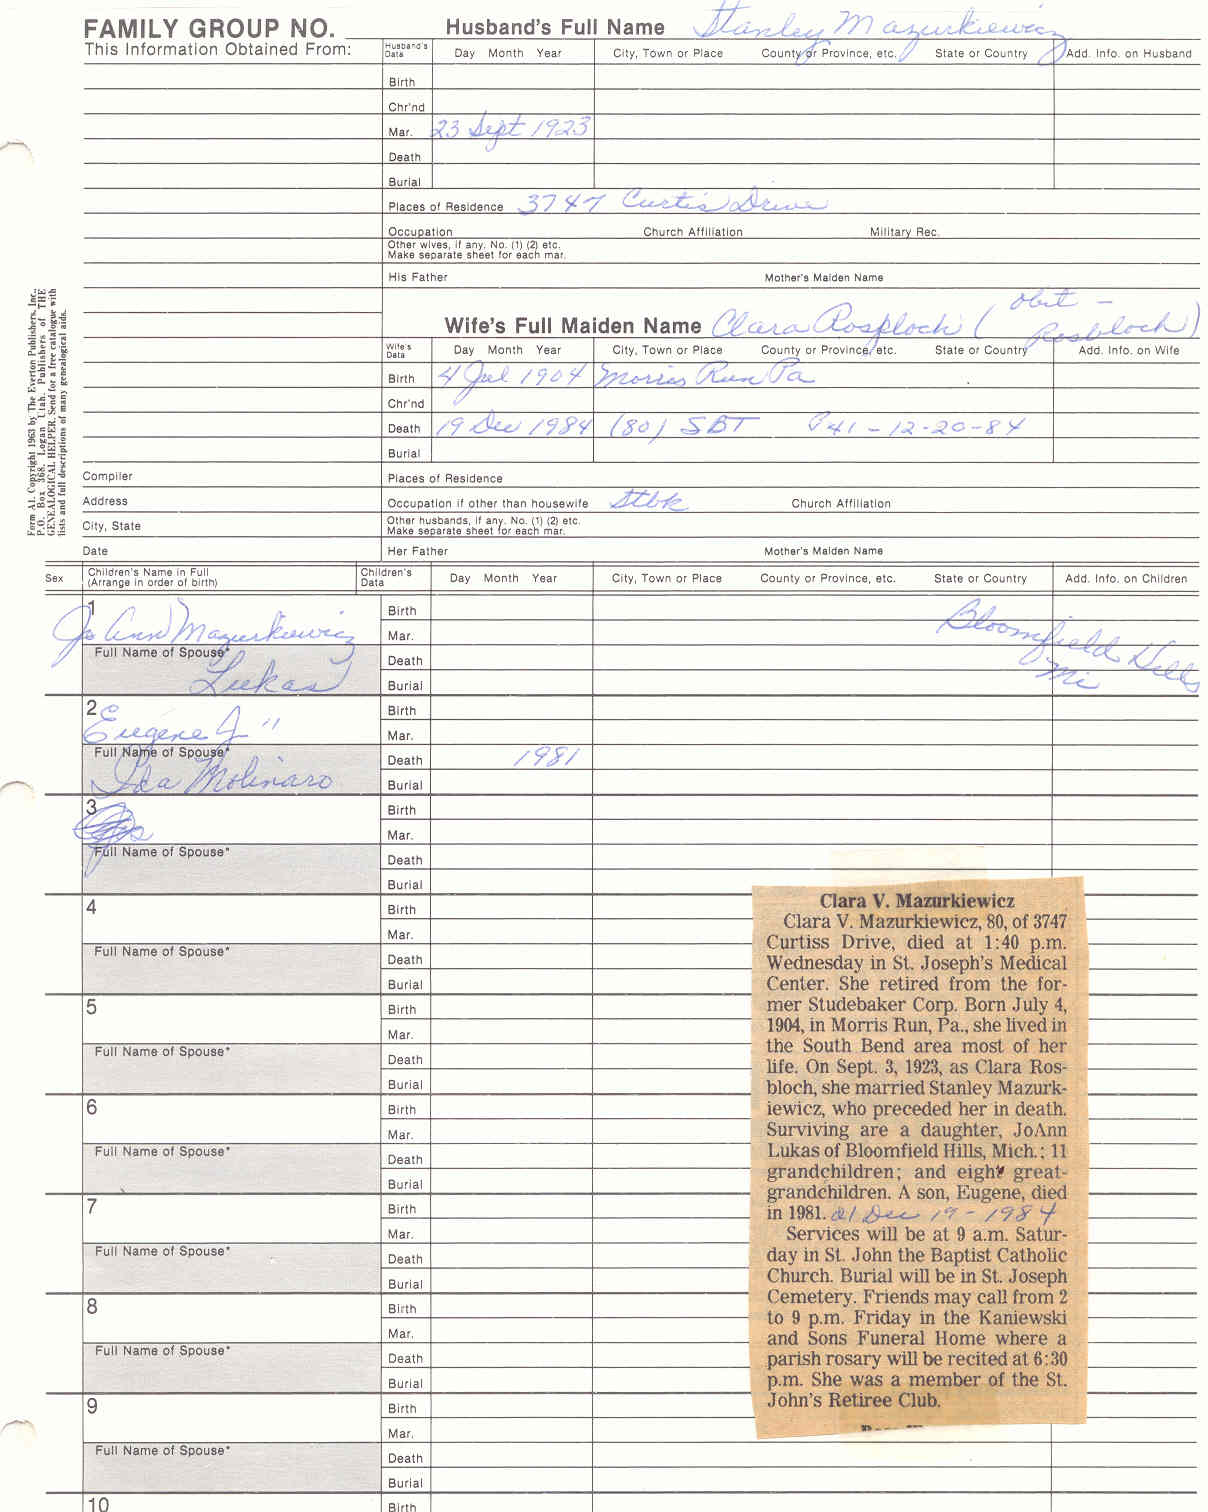 FAMILY GROUP NO. Husband's Full Name Stanley Mazurkiewicz
This Information Obtained From: Husband's Data Day Month Year City, Town or Place County or Province, etc. State or Country Add. Info. on Husband
Birth
Chr'nd
Mar. 23 Sept 1923
Death
Burial
Places of Residence 3747 Curtis Drive
Occupation Church Affiliation Military Rec.
Other wives, if any. No. (1) (2) etc.
Make separate sheet for each mar.
His Father Mother's Maiden Name
Wife's Full Maiden Name Clara Rosploch (obit - Rosbloch)
Wife's Data Day Month Year City, Town or Place County or Province, etc. State or Country Add. Info. on Wife
Birth 4 Jul 1904 Morris Run Pa
Chr'nd
Death 19 Dec 1984 (80) SBT P41-12-20-84
Burial
Compiler Places of Residence
Address Occupation if other than housewife Stbk Church Affiliation
City, State Other husbands, if any. No. (1) (2) etc.
Make separate sheet for each mar.
Date Her Father Mother's Maiden Name
Form A1. Copyright 1963 by The Everton Publishers, Inc.,
P.O. Box 368, Logan Utah. Publishers of THE
GENEALOGICAL HELPER. Send for a free catalogue with
lists and full descriptions of many genealogical aids.
Sex Children's Name in Full (Arrange in order of birth) Children's Data Day Month Year City, Town or Place County or Province, etc. State or Country Add. Info. on Children
1 Birth
Jo Ann Mazurkiewicz Mar. Bloomfield Hills Mi
Full Name of Spouse* Death
Lukas Burial
2 Birth
Eugene J " Mar.
Full Name of Spouse* Death 1981
Ida Molinaro Burial
3 Birth
Mar.
Full Name of Spouse* Death
Burial
4 Birth
Mar.
Full Name of Spouse* Death
Burial
5 Birth
Mar.
Full Name of Spouse* Death
Burial
6 Birth
Mar.
Full Name of Spouse* Death
Burial
7 Birth
Mar.
Full Name of Spouse* Death
Burial
8 Birth
Mar.
Full Name of Spouse* Death
Burial
9 Birth
Mar.
Full Name of Spouse* Death
Burial
10 Birth
Clara V. Mazurkiewicz
Clara V. Mazurkiewicz, 80, of 3747
Curtiss Drive, died at 1:40 p.m.
Wednesday in St. Joseph's Medical
Center. She retired from the for-
mer Studebaker Corp. Born July 4,
1904, in Morris Run, Pa., she lived in
the South Bend area most of her
life. On Sept. 3, 1923, as Clara Ros-
bloch, she married Stanley Mazurk-
iewicz, who preceded her in death.
Surviving are a daughter, JoAnn
Lukas of Bloomfield Hills, Mich.; 11
grandchildren; and eight great-
grandchildren. A son, Eugene, died
in 1981. Dec 19-1984
Services will be at 9 a.m. Satur-
day in St. John the Baptist Catholic
Church. Burial will be in St. Joseph
Cemetery. Friends may call from 2
to 9 p.m. Friday in the Kaniewski
and Sons Funeral Home where a
parish rosary will be recited at 6:30
p.m. She was a member of the St.
John's Retiree Club.